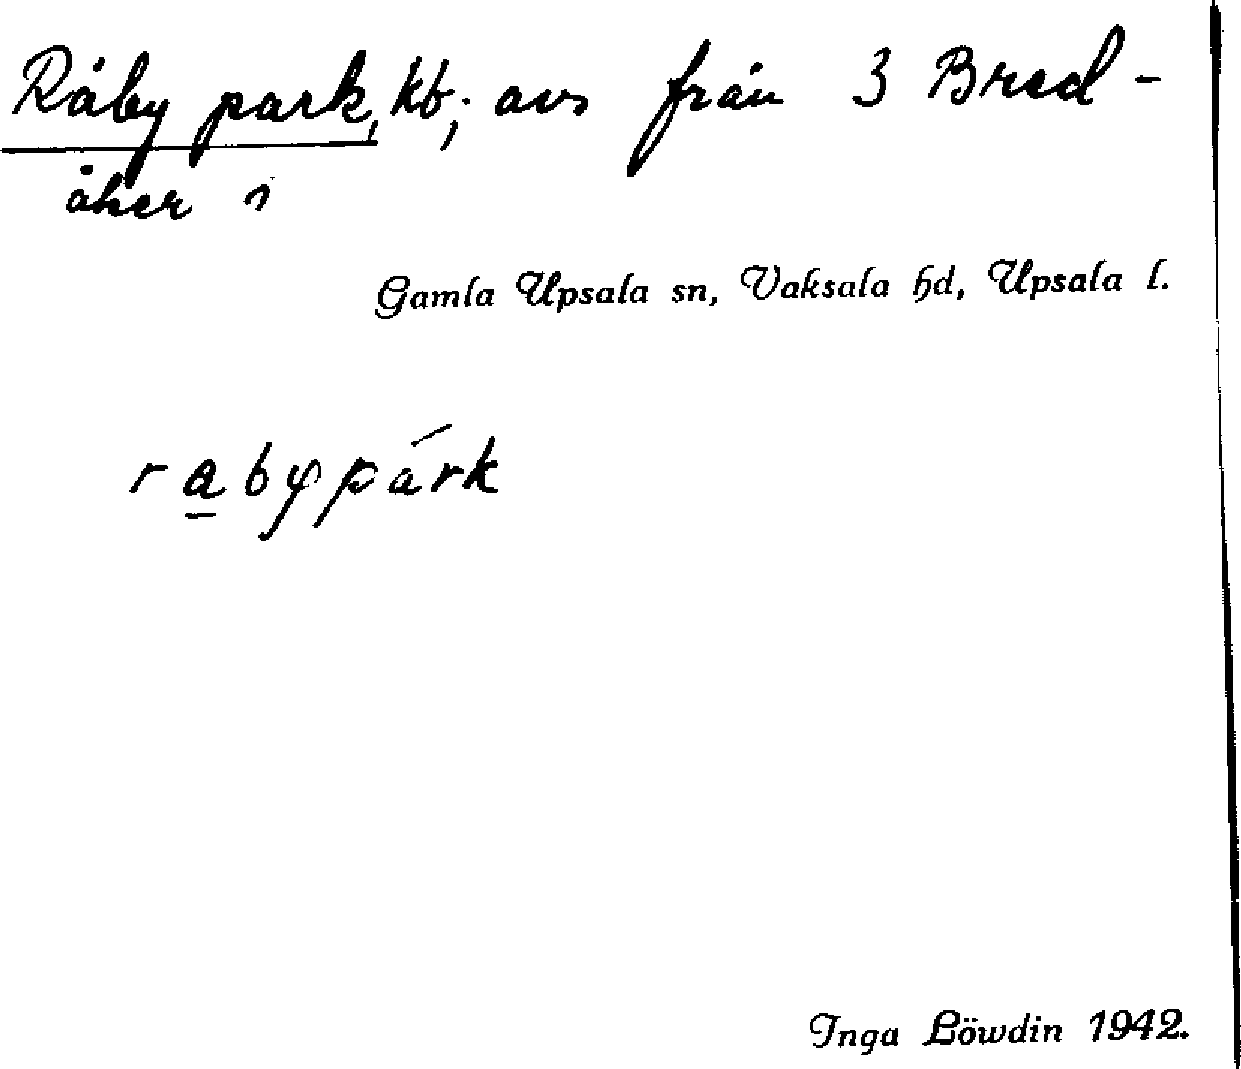 Råby park, kb; avs från 3 Bred-
åker i
Gamla Upsala sn, Vaksala hd, Upsala l.
rabypárk
Inga Löwdin 1942.